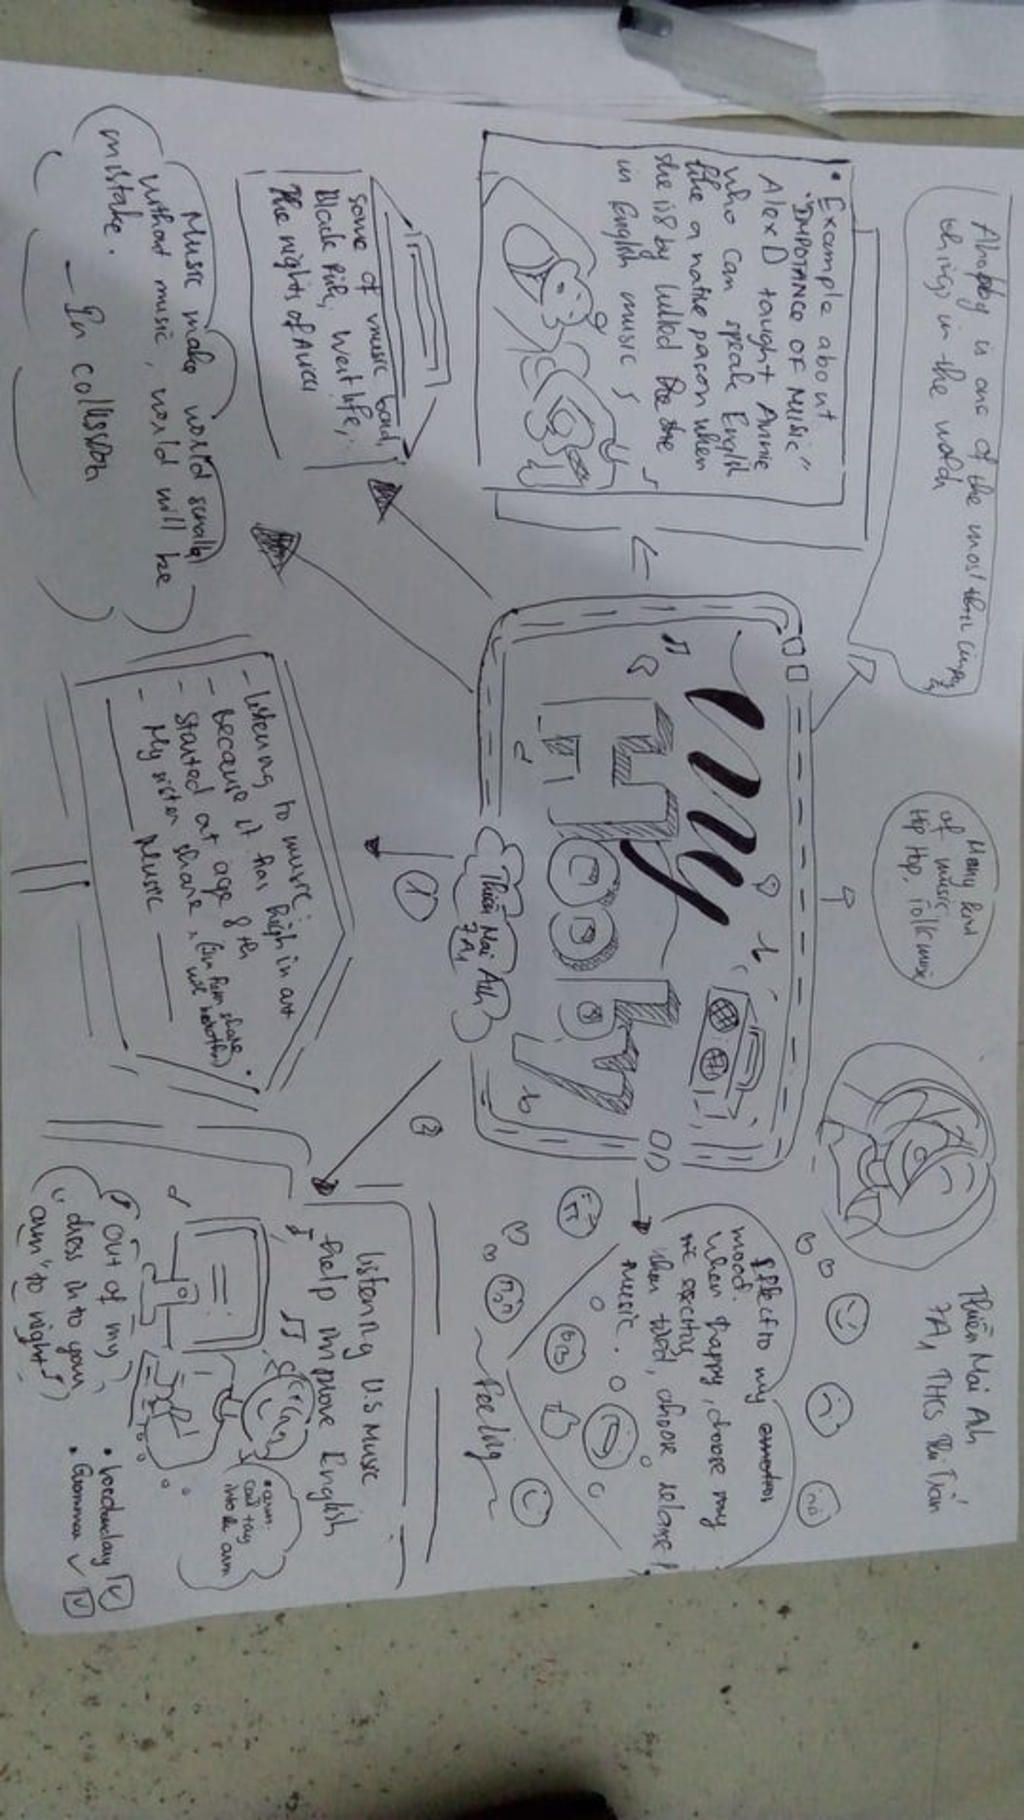 A hobby is one of the most
things in the world
• Example about
"IMPOTANCE OF MUSIC"
Alex D taught Annie
who can speak English
like a native person when
she is 8 by
in English music
Many kind
of music
Hip Hop, folk music
Thiên Mai Anh
7A1 THCS
HOBBY
Thiên Mai Anh
7A1
Effect to my
mood.
when happy, choose my
when tired, choose relase
music.
Feeling
some of music band,
Black Pink, West life,
The nights of Avicii
Music make world smaller
without music, world will be
mistake.
– In collusion
①
- Listening to music:
- Because it has high in art
- Started at age 8 th
- My sister share
Music
②
listening U.S Music
help improve English
out of my
dress in to your
arm" to night
• Vocabulary ✓
• Grammar ✓